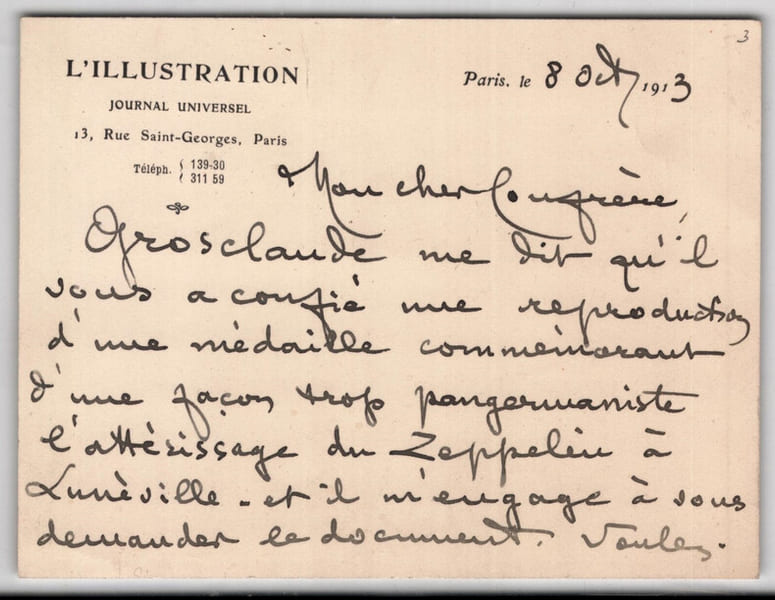 3
L'ILLUSTRATION
JOURNAL UNIVERSEL
13, Rue Saint-Georges, Paris
Téléph. { 139-30
311 59
Paris, le 8 Oct 1913
Mon cher Confrère,
Grosclaude me dit qu'il
vous a confié une reproduction
d'une médaille commémorant
d'une façon trop pangermaniste
l'attérissage du Zeppelin à
Lunéville - et il m'engage à vous
demander le document. Voulez-